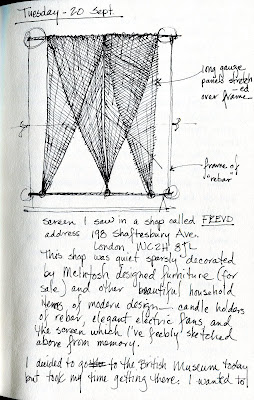 Tuesday - 20 Sept.
long gauze
panels stretch
-ed
over frame
frame of
"rebar"
screen I saw in a shop called FREVD
address 198 Shaftesbury Ave.
London, WC2H 8JL
This shop was quiet sparsly decorated
by McIntosh designed furniture (for
sale) and other beautiful household
items of modern design — candle holders
of rebar, elegant electric fans, and
the screen which I've feebly sketched
above from memory.
I decided to go to the British Museum today
but took my time getting there. I wanted to